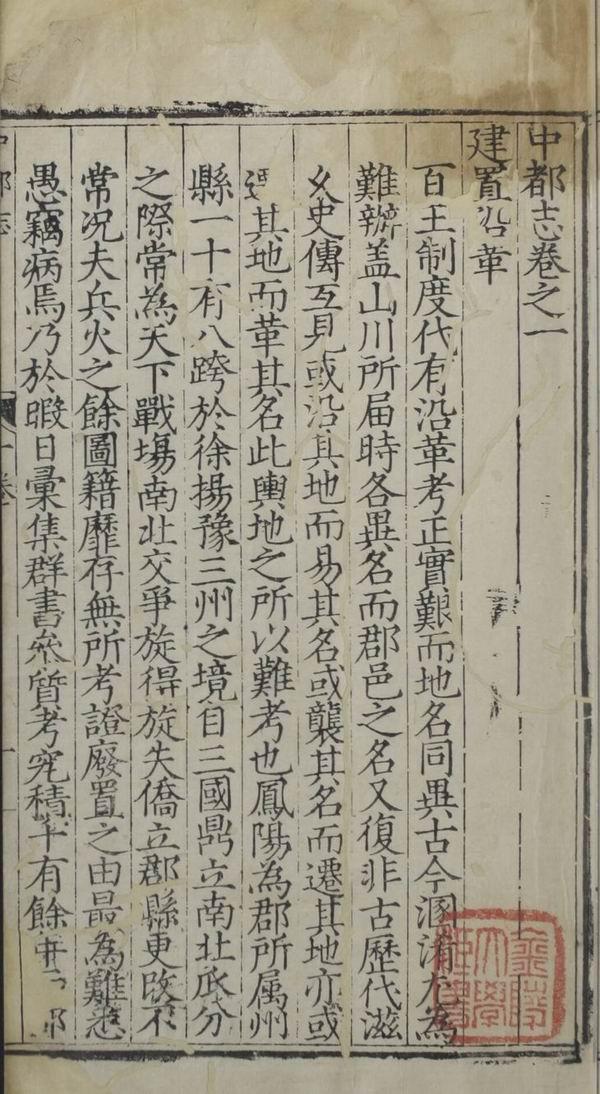 中都志卷之一
建置沿革
百王制度代有沿革考正實艱而地名同異古今溷淆尤為
難辦盖山川所届時各異名而郡邑之名又復非古歷代滋
久史傳互見或沿其地而易其名或襲其名而遷其地亦或
其地而革其名此輿地之所以難考也鳳陽為郡所属州
縣一十有八跨於徐揚豫三州之境自三國鼎立南北瓜分
之際常為天下戰塲南北交爭旋得旋失僑立郡縣更改不
常况夫兵火之餘圖籍靡存無所考證廢置之由最為難悉
愚竊病焉乃於暇日彙集群書叅質考究積年有餘
金陵大學